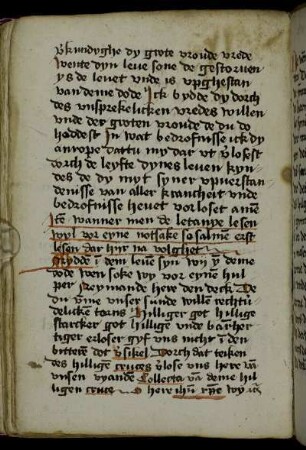 kundyghe dy grote vroude vnde
wente dyn leue sone de gestoruen
ys de leuet vnde is vpghestan
van deme dode Ick bydde dy dorch
des vnsprekeliken vredes willen
vnde der groten vroude de du do
haddest In wat bedrofnisse ick dy
anrope dattu my dar vt vlosest
dorch de leyfte dynes leuen kyn
des de dy myt syner vpuerstan
denisse van aller krancheit vnde
bedrofnisse heuet vorloset amē
Itē wanner men de letanye lesen
wyl vor eyne notsake so salmē erst
lesen dar hir na volghet
Mydde ī dem leuē syn wy ī deme
dode wen soke wy vor eynē hul
per Neymande here den deck De
du vme vnser sunde willē rechtu
delickē torns Hilliger got hillige
starcker got hillige vnde barher
tiger erloser gyf vns nicht ī den
bitterē dot vsikel Dorch dat teiken
des hilligē cruces vlose vns here vā
vnsen vyandē Collecta vā deme hil
ligen cruce O here ihū wy